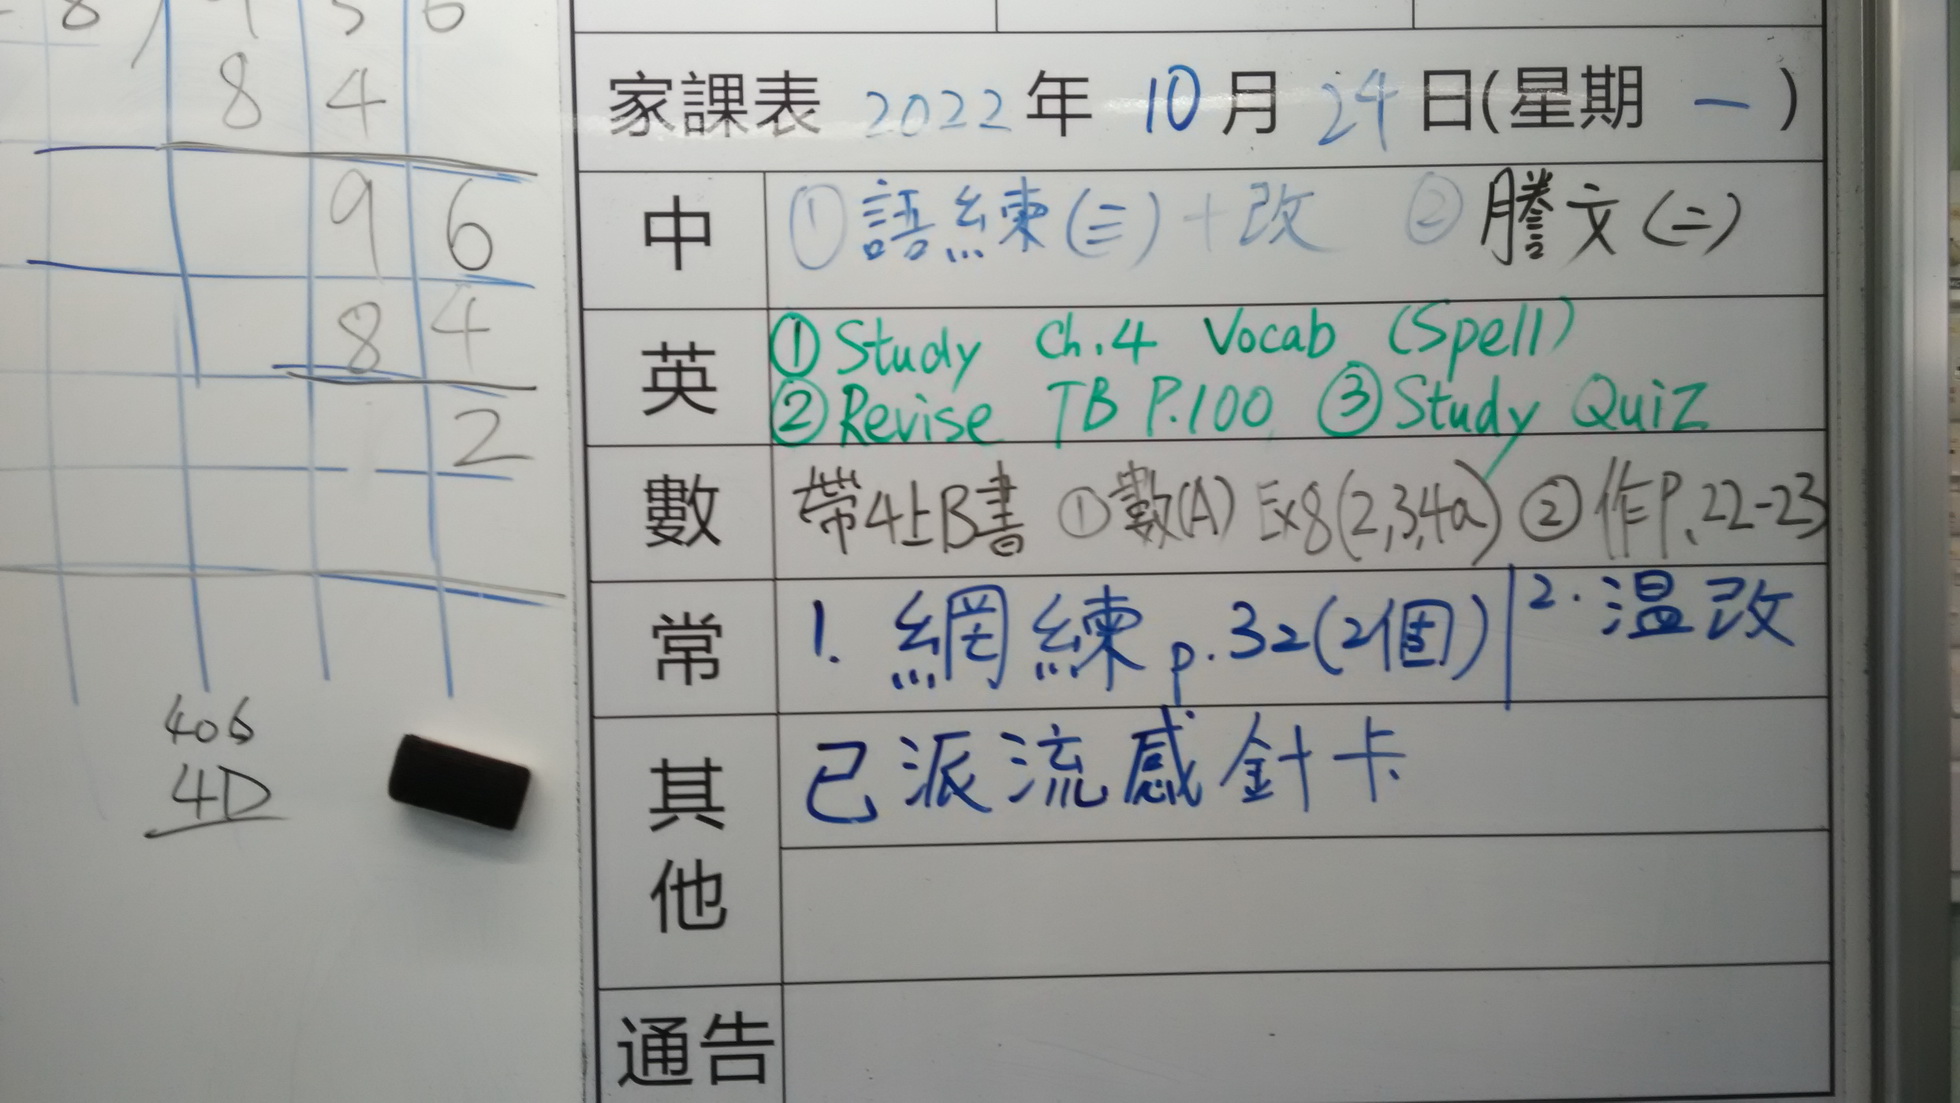 8 4
9 6
8 4
2
406
4D
家課表 2022 年 10 月 24 日(星期 一 )
中 ① 語練(三)+改 ② 謄文(二)
英 ① Study Ch.4 Vocab (Spell)
② Revise TB P.100 ③ Study Quiz
數 帶4上B書 ① 數(A) Ex8(2,3,4a) ② 作P.22-23
常 1. 網練 p.32(2個) 2. 温改
其他 已派流感針卡
通告